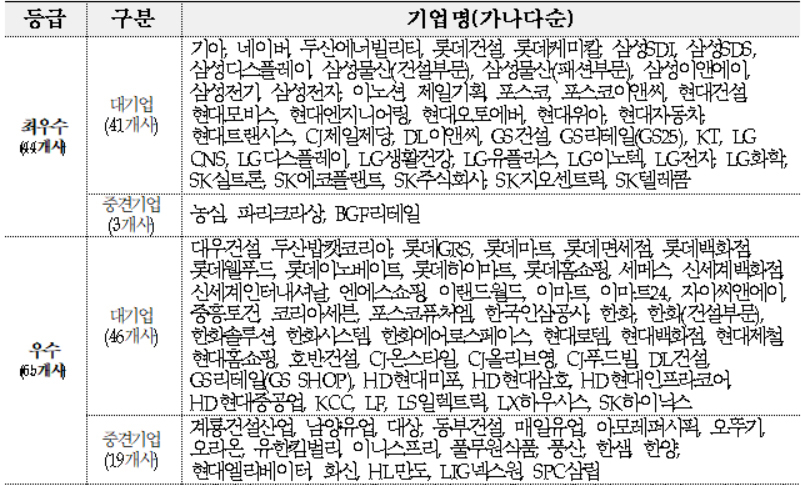 등급 구분 기업명(가나다순)
최우수 (44개사)
대기업 (41개사)
기아, 네이버, 두산에너빌리티, 롯데건설, 롯데케미칼, 삼성SDI, 삼성SDS,
삼성디스플레이, 삼성물산(건설부문), 삼성물산(패션부문), 삼성이앤에이,
삼성전기, 삼성전자, 이노션, 제일기획, 포스코, 포스코이앤씨, 현대건설,
현대모비스, 현대엔지니어링, 현대오토에버, 현대위아, 현대자동차,
현대트랜시스, CJ제일제당, DL이앤씨, GS건설, GS리테일(GS25), KT, LG
CNS, LG디스플레이, LG생활건강, LG유플러스, LG이노텍, LG전자, LG화학,
SK실트론, SK에코플랜트, SK주식회사, SK지오센트릭, SK텔레콤
중견기업 (3개사)
농심, 파리크라상, BGF리테일
우수 (65개사)
대기업 (46개사)
대우건설, 두산밥캣코리아, 롯데GRS, 롯데마트, 롯데면세점, 롯데백화점,
롯데웰푸드, 롯데이노베이트, 롯데하이마트, 롯데홈쇼핑, 세메스, 신세계백화점,
신세계인터내셔날, 엔에스쇼핑, 이랜드월드, 이마트, 이마트24, 자이씨앤에이,
중흥토건, 코리아세븐, 포스코퓨처엠, 한국인삼공사, 한화, 한화(건설부문),
한화솔루션, 한화시스템, 한화에어로스페이스, 현대로템, 현대백화점, 현대제철,
현대홈쇼핑, 호반건설, CJ온스타일, CJ올리브영, CJ푸드빌, DL건설,
GS리테일(GS SHOP), HD현대미포, HD현대삼호, HD현대인프라코어,
HD현대중공업, KCC, LF, LS일렉트릭, LX하우시스, SK하이닉스
중견기업 (19개사)
계룡건설산업, 남양유업, 대상, 동부건설, 매일유업, 아모레퍼시픽, 오뚜기,
오리온, 유한킴벌리, 이니스프리, 풀무원식품, 풍산, 한샘, 한양,
현대엘리베이터, 화신, HL만도, LIG넥스원, SPC삼립